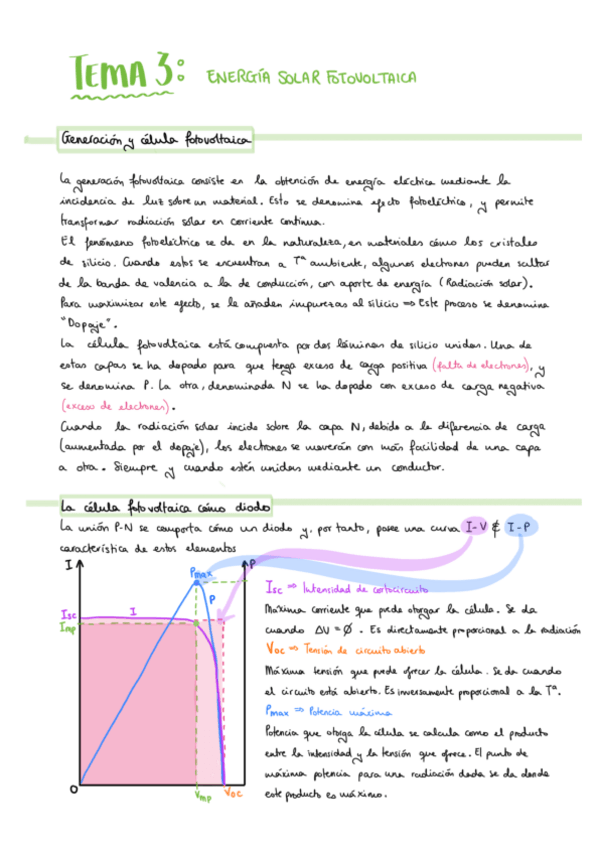 TEMA 3: ENERGÍA SOLAR FOTOVOLTAICA
Generación y célula fotovoltaica
La generación fotovoltaica consiste en la obtención de energía eléctrica mediante la
incidencia de luz sobre un material. Esto se denomina efecto fotoeléctrico, y permite
transformar radiación solar en corriente continua.
El fenómeno fotoeléctrico se da en la naturaleza, en materiales cómo los cristales
de silicio. Cuando estos se encuentran a Tª ambiente, algunos electrones pueden saltar
de la banda de valencia a la de conducción, con aporte de energía (Radiación solar).
Para maximizar este efecto, se le añaden impurezas al silicio ⇒ Este proceso se denomina
"Dopaje".
La célula fotovoltaica está compuesta por dos láminas de silicio unidas. Una de
estas capas se ha dopado para que tenga exceso de carga positiva (falta de electrones), y
se denomina P. La otra, denominada N se ha dopado con exceso de carga negativa
(exceso de electrones).
Cuando la radiación solar incide sobre la capa N, debido a la diferencia de carga
(aumentada por el dopaje), los electrones se moverán con más facilidad de una capa
a otra. Siempre y cuando estén unidas mediante un conductor.
La célula fotovoltaica cómo diodo
La unión P-N se comporta cómo un diodo y, por tanto, posee una curva I-V & I-P
característica de estos elementos
I
P
Pmax
P
Isc
I
Imp
O
Vmp
Voc
Isc ⇒ Intensidad de cortocircuito
Máxima corriente que puede otorgar la célula. Se da
cuando ΔV = Ø. Es directamente proporcional a la radiación
Voc ⇒ Tensión de circuito abierto
Máxima tensión que puede ofrecer la célula. Se da cuando
el circuito está abierto. Es inversamente proporcional a la Tª.
Pmax ⇒ Potencia máxima
Potencia que otorga la célula se calcula como el producto
entre la intensidad y la tensión que ofrece. El punto de
máxima potencia para una radiación dada se da donde
este producto es máximo.